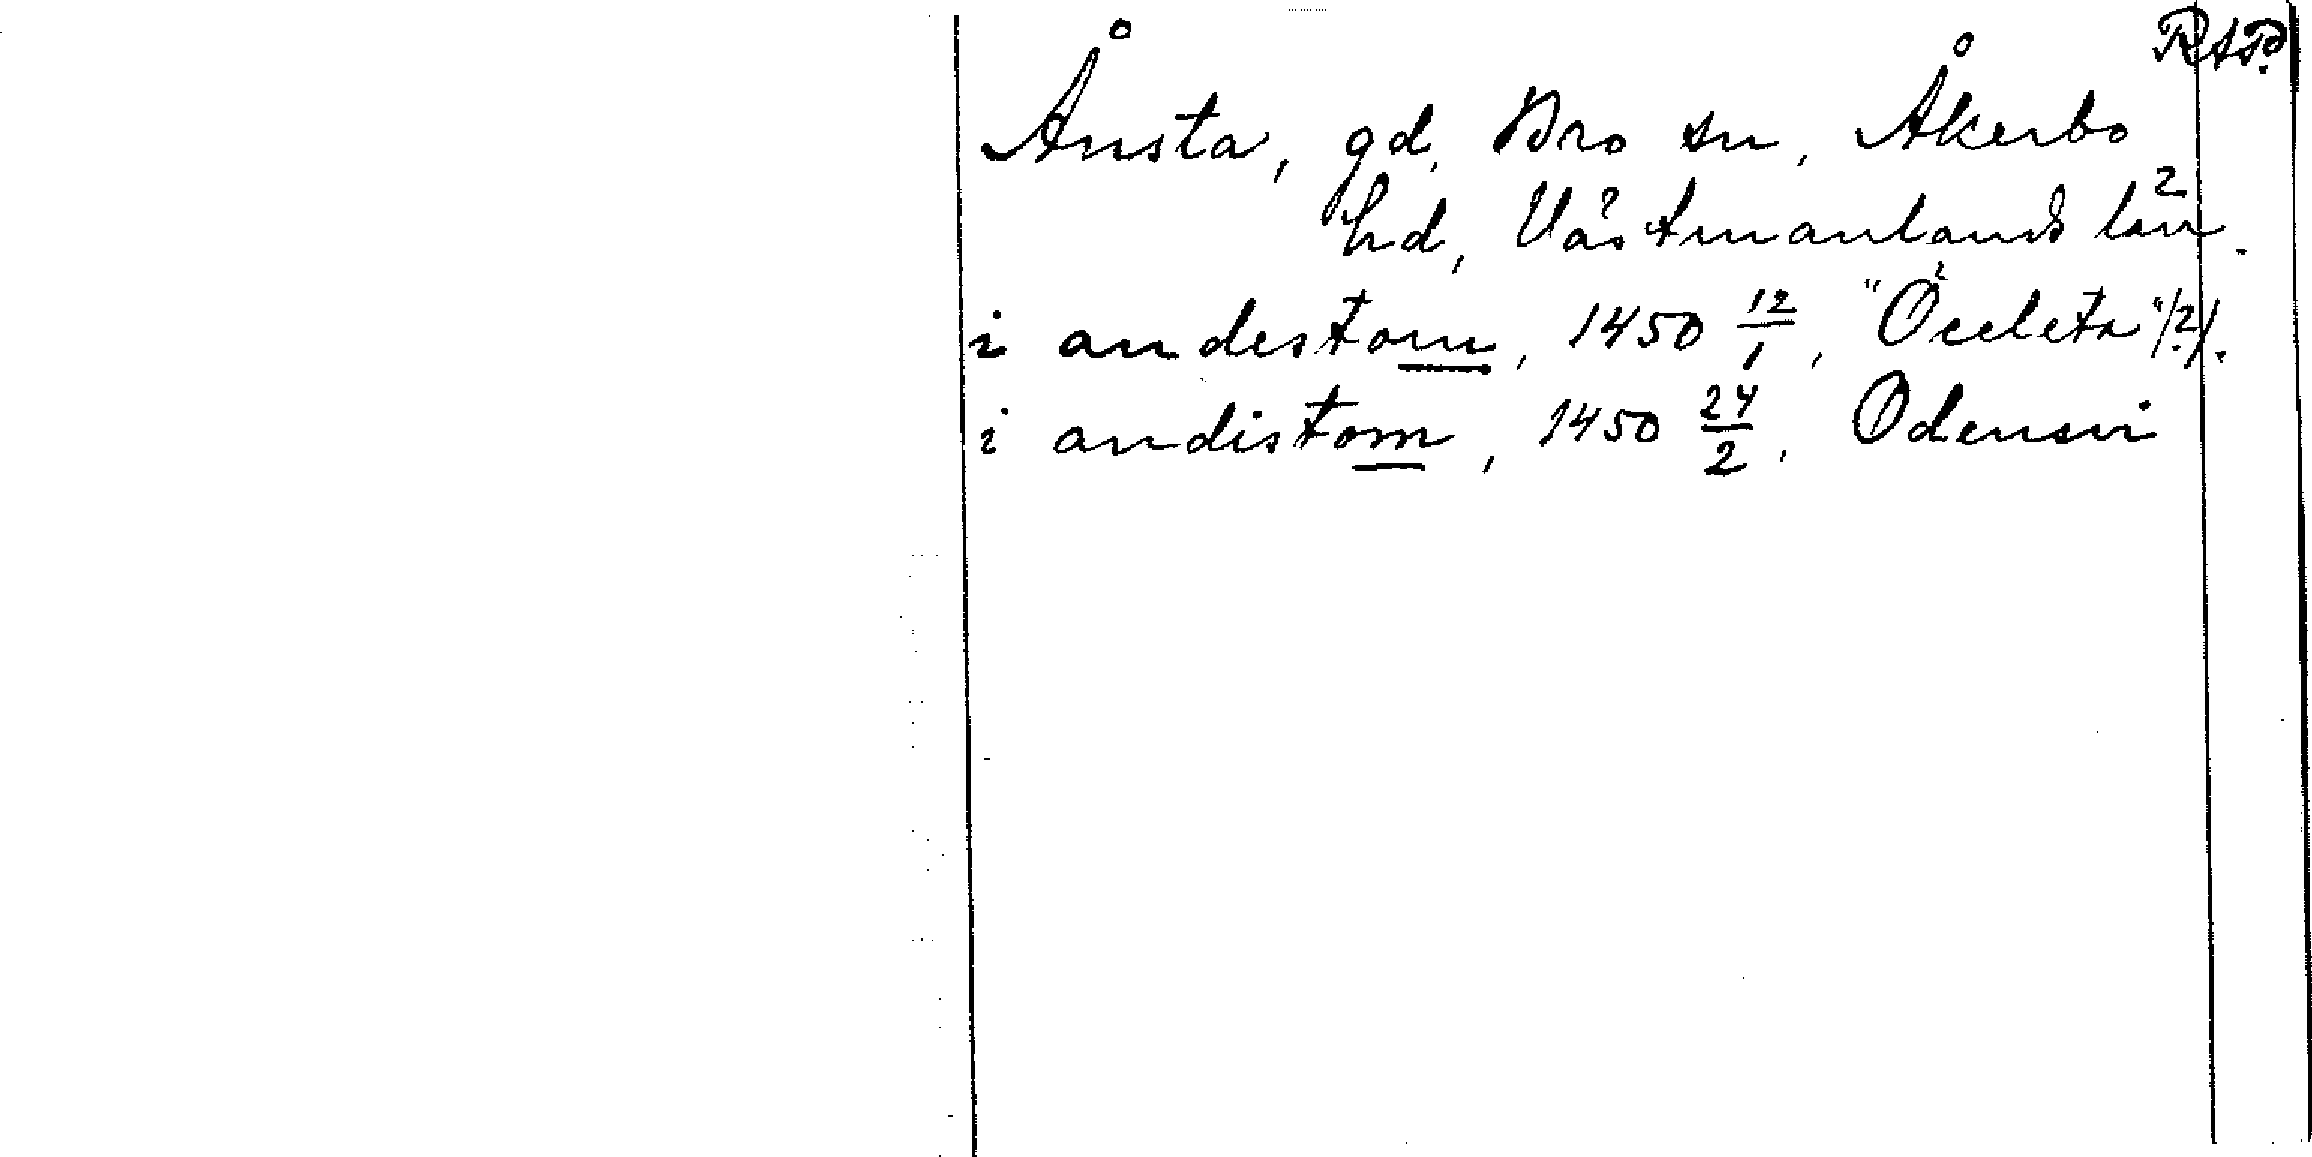 RAP.
Ånsta, gd, Bro sn, Åkerbo
hd, Västmanlands län.
i andestom, 1450 12/1, "Öeeleta"/?/.
i andistom, 1450 24/2, Odensvi